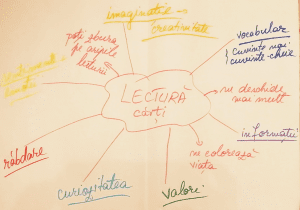 imaginație
creativitate
poți zbura
pe aripile
lecturii
vocabular
cuvinte noi
cuvinte cheie
LECTURĂ
cărți
ne deschide
mai mult
informații
răbdare
ne colorează
viața
curiozitatea
valori